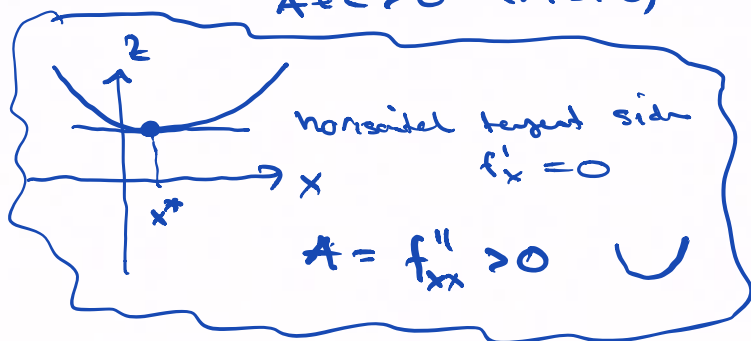 z
horisontal tangent side
f'_x = 0
x
x*
A = f''_xx > 0